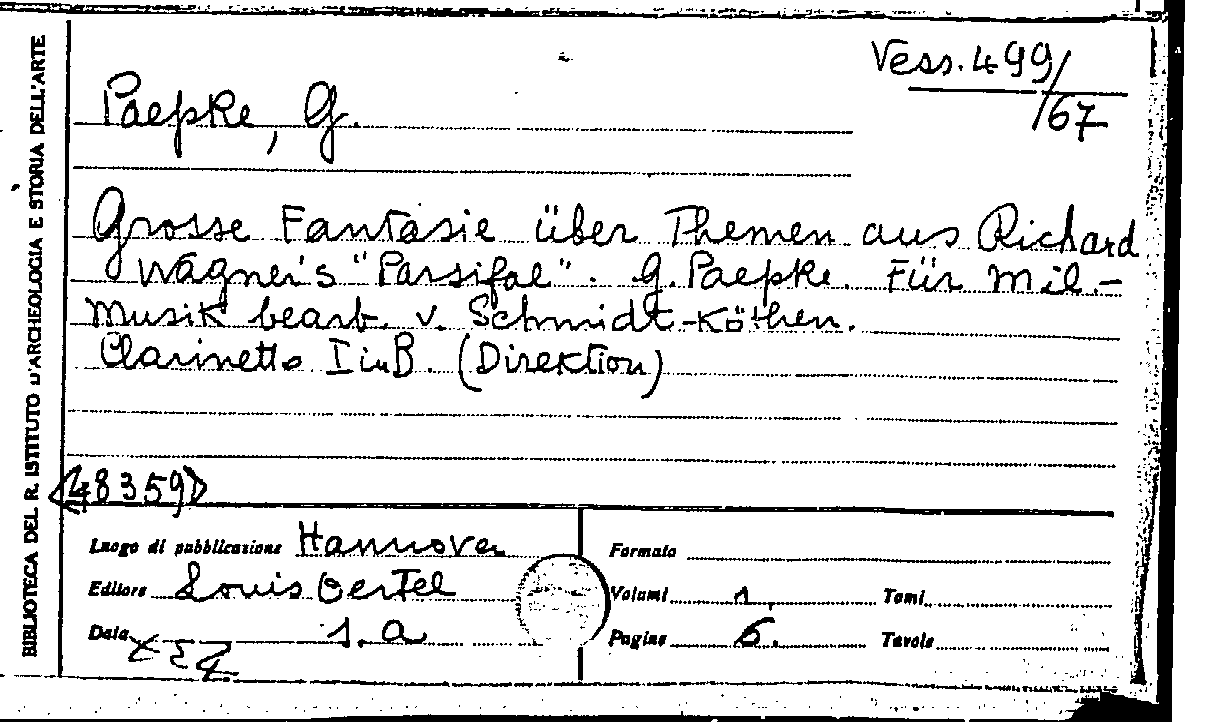 BIBLIOTECA DEL R. ISTITUTO D'ARCHEOLOGIA E STORIA DELL'ARTE
Vess. 499/67
Paepke, G.
Grosse Fantasie über Themen aus Richard
Wagner's "Parsifal". G. Paepke. Für Mil.-
Musik bearb. v. Schmidt-Köthen.
Clarinetto I in B. (Direktion)
<48359>
Luogo di pubblicazione Hannover
Editore Louis Oertel
Data s.a
Formato
Volumi 1. Tomi
Pagine 6. Tavole